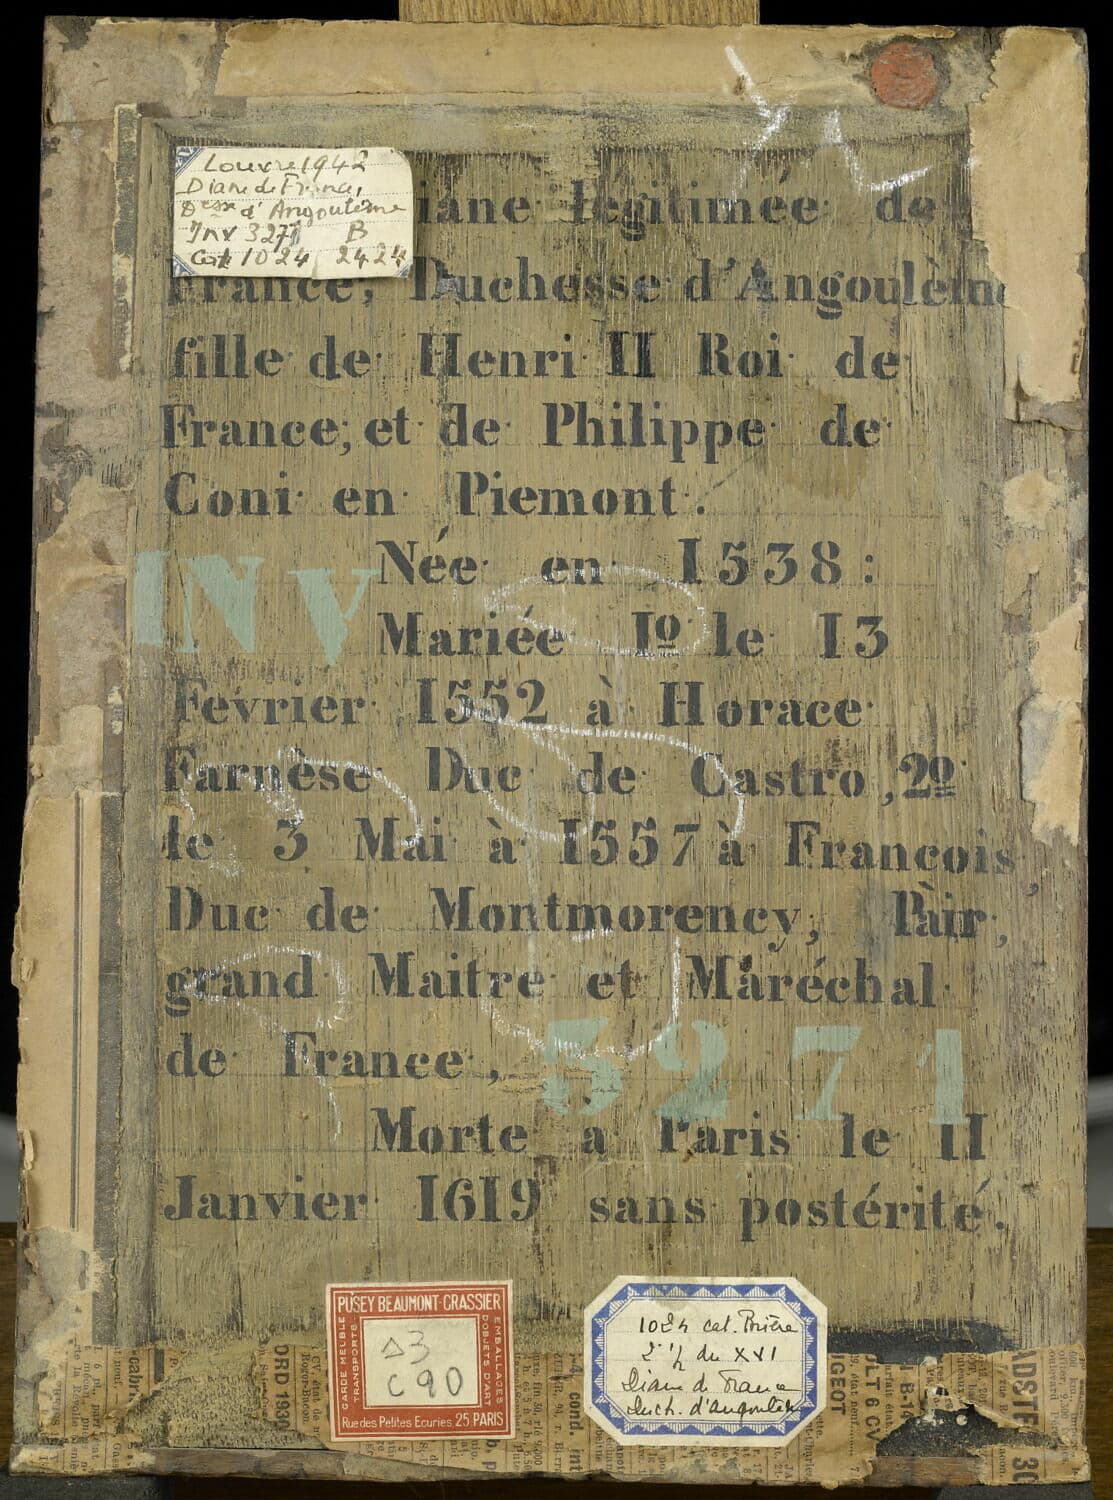 Louvre 1942
Diane de France,
D esse d' Angoulême
Inv 3271 B
Cat 1024 2424
iane légitimée de
France, Duchesse d'Angoulème
fille de Henri II Roi de
France, et de Philippe de
Coni en Piemont.
Née en 1538 :
INV
Mariée Iº le 13
Fevrier 1552 à Horace
Farnèse Duc de Castro, 2º
le 3 Mai à 1557 à François,
Duc de Montmorency, Pair,
grand Maitre et Maréchal
de France,
3271
Morte a Paris le 11
Janvier 1619 sans postérité.
PUSEY BEAUMONT-CRASSIER
GARDE MEUBLE
TRANSPORTS
EMBALLAGES
D'OBJETS D'ART
Δ3
C90
Rue des Petites Ecuries 25 PARIS
1024 cat. Brière
2e ½ du XVI
Diane de France
Duch. d'angoulême
ORD 193
cond. int
IGEOT
LT 6 CV
B-14
ADSTE
30